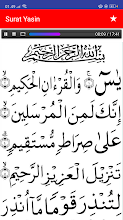 01.49
Surat Yasin
08:09 / 17:41
بِسْمِ اللَّهِ الرَّحْمَٰنِ الرَّحِيمِ
يسٓ ۝ وَالْقُرْءَانِ الْحَكِيمِ ۝
إِنَّكَ لَمِنَ الْمُرْسَلِينَ ۝
عَلَىٰ صِرَاطٍ مُّسْتَقِيمٍ ۝
تَنزِيلَ الْعَزِيزِ الرَّحِيمِ ۝
لِتُنذِرَ قَوْمًا مَّا أُنذِرَ